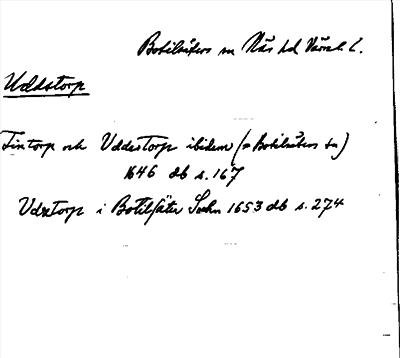 Botilsäters sn Näs hd Värml. l.
Uddstorp
Fintorp och Uddestorp ibidem (= Botilsäters sn)
1646 db s. 167
Udztorp i Botilsäter Sochn 1653 db s. 274